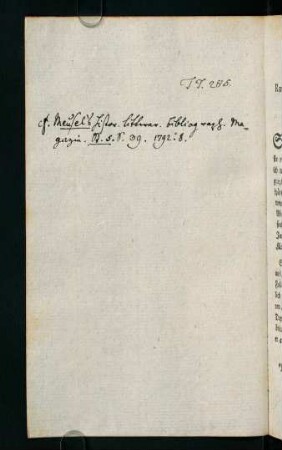 TT. 286.
cf. Meusel's histor. litterar. bibliograph. Ma-
gazin. St. 5. S. 39. 1792. 8.